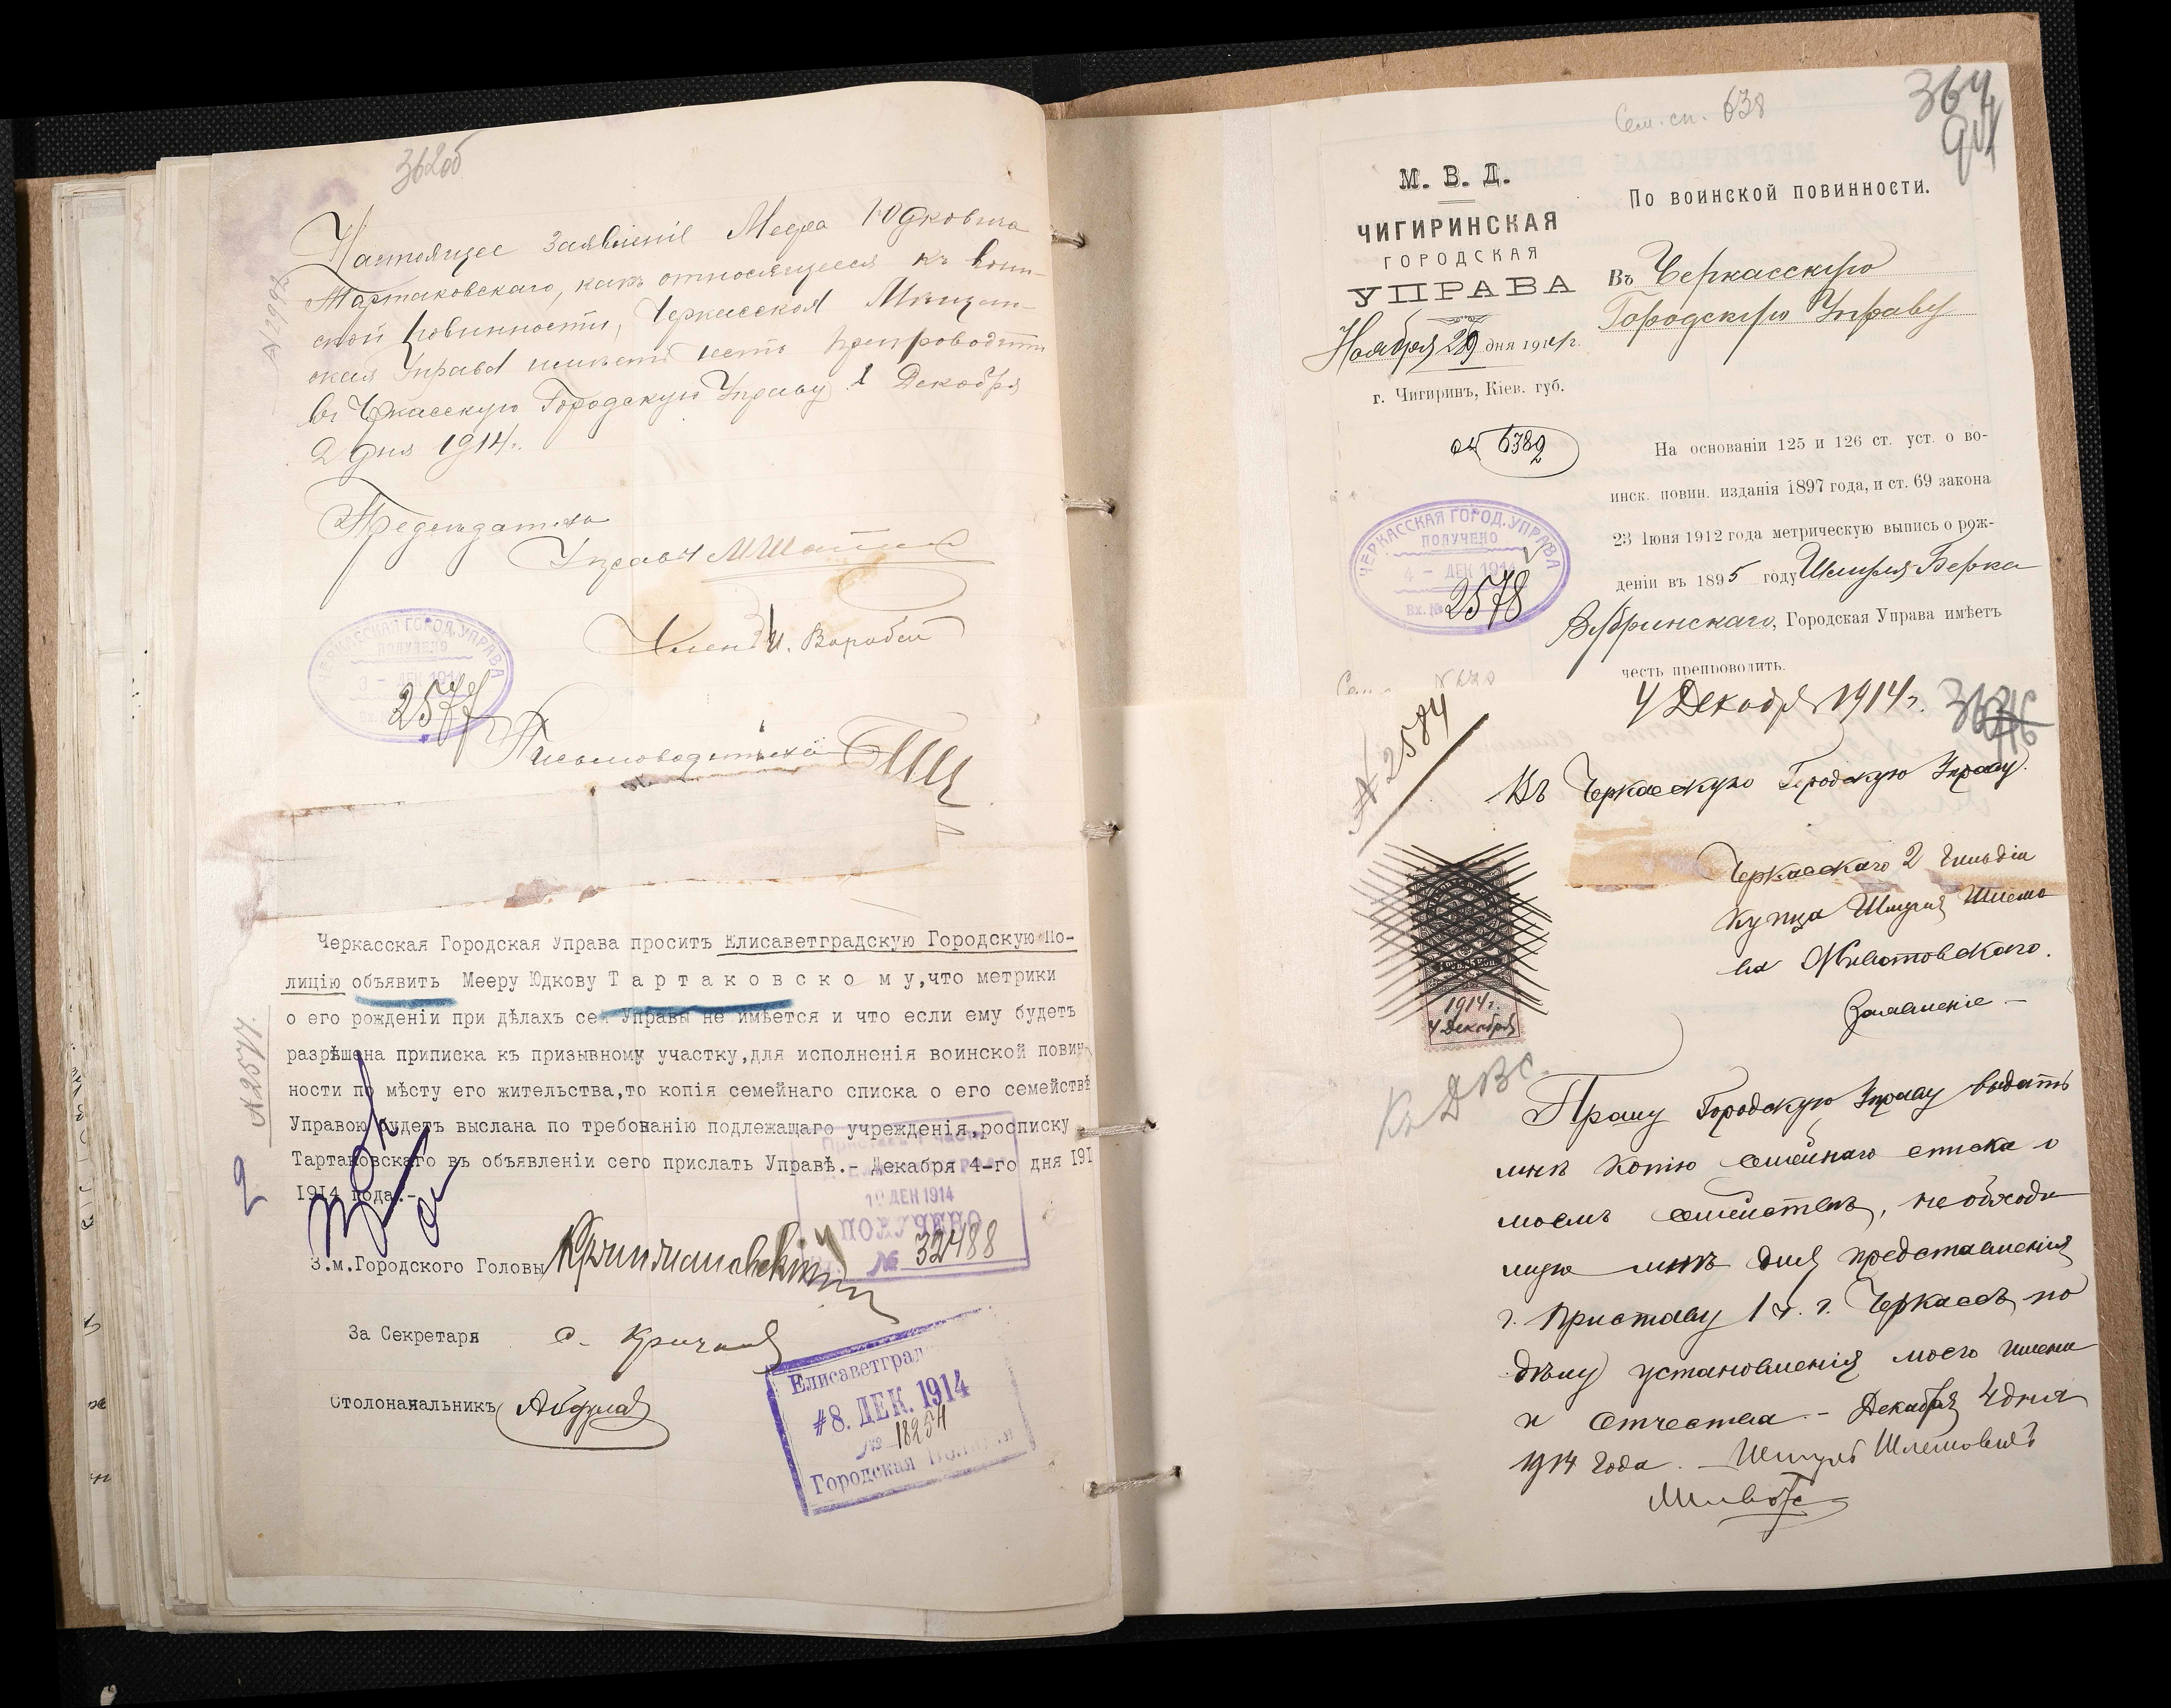 362об
Настоящее заявленіе Меера Юдковича
Тартаковскаго, какъ относящееся къ воин-
ской повинности, Черкасская Мѣщан-
ская Управа имѣетъ честь препроводить
въ Черкасскую Городскую Управу. Декабря
2 дня 1914 г.
N 2992
Предсѣдатель
Управы
Членъ И. Воробей
ЧЕРКАССКАЯ ГОРОД. УПРАВА
ПОЛУЧЕНО
3 - ДЕК 1914
2577
Письмоводитель
Черкасская Городская Управа проситъ Елисаветградскую Городскую По-
лицію объявить Мееру Юдкову Т а р т а к о в с к о м у, что метрики
о его рожденіи при дѣлахъ сей Управы не имѣется и что если ему будетъ
разрѣшена приписка къ призывному участку, для исполненія воинской повин-
ности по мѣсту его жительства, то копія семейнаго списка о его семействѣ
Управою будетъ выслана по требованію подлежащаго учрежденія, росписку
Тартаковскаго въ объявленіи сего прислать Управѣ.- Декабря 4-го дня 191
1914 года.-
N 2577.
2
10 ДЕК 1914
ПОЛУЧЕНО
№ 32488
З.м.Городского Головы
За Секретаря
Столоначальникъ
Елисаветград
#8. ДЕК. 1914
№ 18254
Городская Полиція
Сем. сп. 638
364
М. В. Д.
ЧИГИРИНСКАЯ
ГОРОДСКАЯ
УПРАВА
Ноября 29 дня 1914 г.
г. Чигиринъ, Кіев. губ.
6389
По воинской повинности.
Въ Черкасскую
Городскую Управу
На основаніи 125 и 126 ст. уст. о во-
инск. повин. изданія 1897 года, и ст. 69 закона
23 Іюня 1912 года метрическую выпись о рож-
деніи въ 1895 году Шмуля-Берка
Городская Управа имѣетъ
честь препроводить.
ЧЕРКАССКАЯ ГОРОД. УПРАВА
ПОЛУЧЕНО
4 - ДЕК 1914
Вх. № 2578
4 Декабря 1914 г.
N 2584
Въ Черкасскую Городскую Управу.
Черкасскаго 2 гильдіи
купца Шмуля Шлемо
ва Животовскаго.
Заявленіе -
1914 г.
4 Декабря
Прошу Городскую Управу выдать
мнѣ копію семейнаго списка о
моемъ семействѣ, необходи
мую мнѣ для представленія
г. Приставу 1 ч. г. Черкассъ по
дѣлу установленія моего имени
и отчества - Декабря 4 дня
1914 года. - Шмуль Шлемовичъ
Живото